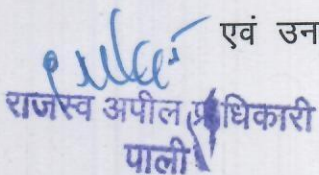 एवं उन
राजस्व अपील प्राधिकारी
पाली